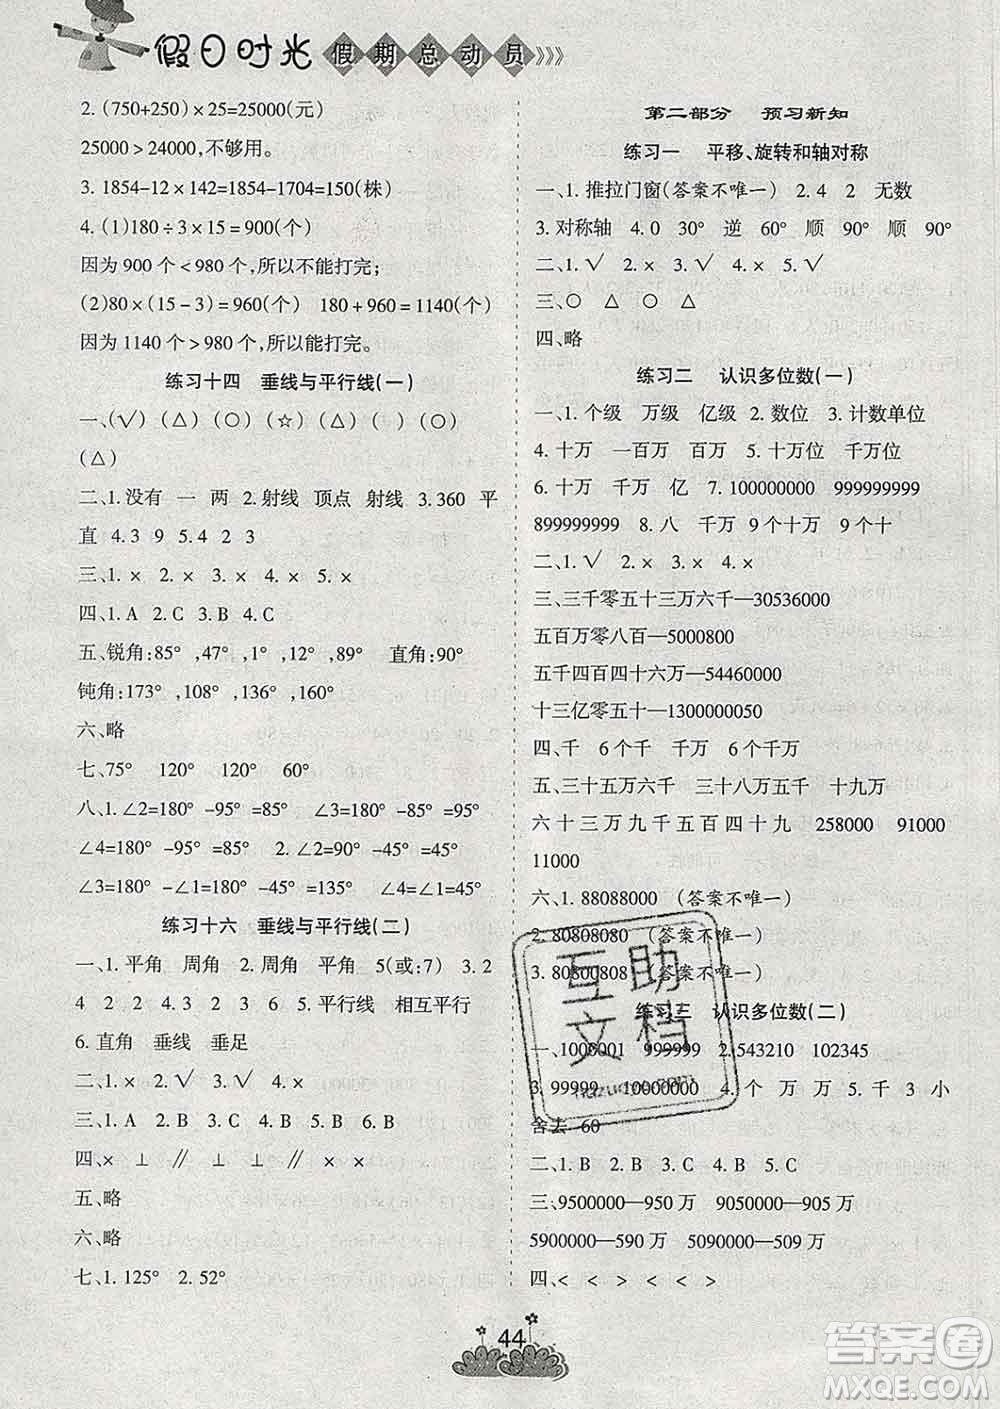 假日时光 假期总动员
2. (750+250)×25=25000(元)
25000＞24000,不够用。
3. 1854-12×142=1854-1704=150(株)
4. (1)180÷3×15=900(个)
因为 900 个＜980 个,所以不能打完;
(2)80×(15-3)=960(个) 180+960=1140(个)
因为 1140 个＞980 个,所以能打完。
练习十四 垂线与平行线(一)
一、(√) (△) (○) (☆) (△) ( ) (○)
(△)
二、1.没有 一 两 2.射线 顶点 射线 3.360 平
直 4.3 9 5.4 2 3
三、1.× 2.× 3.× 4.√ 5.×
四、1.A 2.C 3.B 4.C
五、锐角:85° ,47° ,1° ,12° ,89° 直角:90°
钝角:173° ,108° ,136° ,160°
六、略
七、75° 120° 120° 60°
八、1.∠2=180° -95° =85° ∠3=180° -85° =95°
∠4=180° -95° =85° 2.∠2=180° -135° =45°
∠3=180° -45° =135° ∠4=180° -135° =45°
练习十六 垂线与平行线(二)
一、1.平角 周角 2.周角 平角 5(或:7) 3.2
4 2 2 4.2 3 6 5.平行线 相互平行
6.直角 垂线 垂足
二、1.× 2.√ 3.√ 4.×
三、1.A 2.C 3.A 4.C 5.A 6.B
四、× ⊥ ∥ ⊥ ∥ × ×
五、略
六、略
七、1.125° 2.52°
第二部分 预习新知
练习一 平移、旋转和轴对称
一、1.推拉门窗(答案不唯一) 2.4 2 无数
3.对称轴 4.O 30° 逆 60° 顺 90° 顺 90°
二、1.√ 2.√ 3.× 4.× 5.√
三、○ △ ○ △ △
四、略
练习二 认识多位数(一)
一、1.个级 万级 亿级 2.数位 3.计数单位
4.十万 一百万 百万 5.十万位 千万位
6.十万 千万 亿 7.100000000 999999999
899999999 8.八 千万 9 个十万 9 个十
二、1.√ 2.√ 3.× 4.×
三、三千零五十三万六千—30536000
五百万零八百—5000800
五千四百四十六万—54460000
十三亿零五十—1300000050
四、千 6个千 万 6个千万
五、三十五万六千 四千万 七十九万
六十三万九千五百四十九 258000 91000
11000
六、1.88088000 (答案不唯一)
2.80808080 (答案不唯一)
3.80800808 (答案不唯一)
练习三 认识多位数(二)
一、1000001 999999 2.543210 102345
3.99999 10000000 4.个 万 万 5.千 3 小
舍去 60
二、1.B 2.B 3.C 4.B 5.B
三、9500000—950 万 9050000—905 万
5900000—590 万 5090000—509 万
四、＜ ＜ ＞ ＜ ＜ ＞
44
互助
文档
答案圈
MXQE.COM